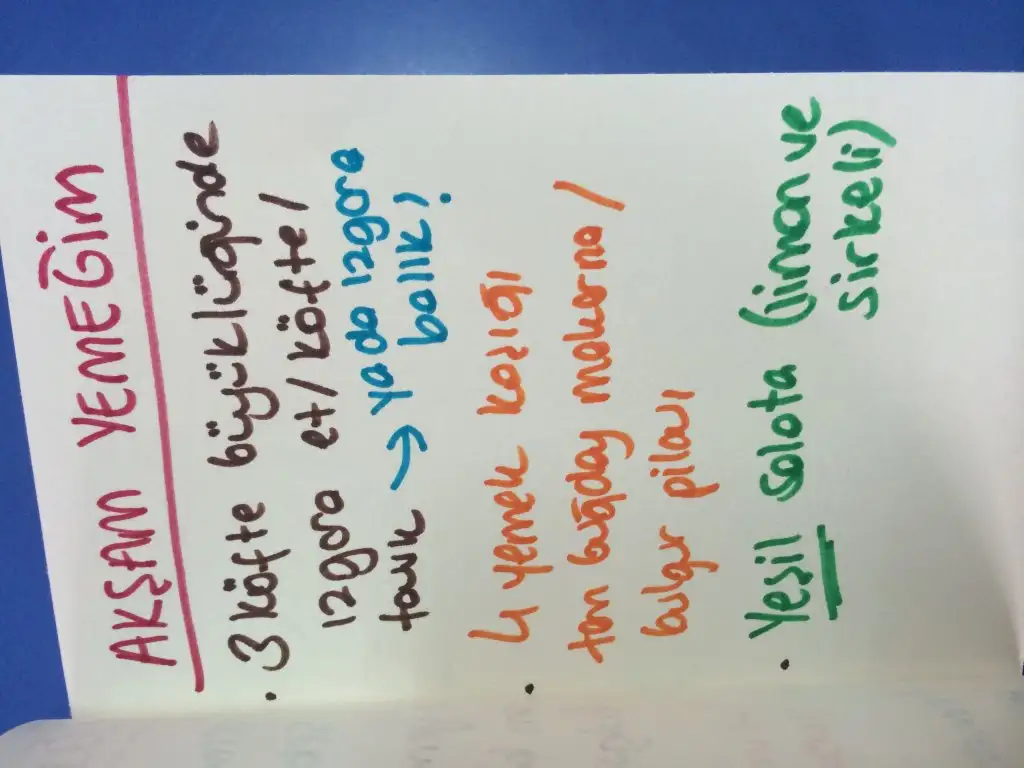 AKŞAM YEMEĞİM
· 3 köfte büyüklüğünde
ızgara et/köfte/
tavuk → ya da ızgara
balık!
· 4 yemek kaşığı
tam buğday makarna /
bulgur pilavı
· Yeşil salata (limon ve
sirkeli)